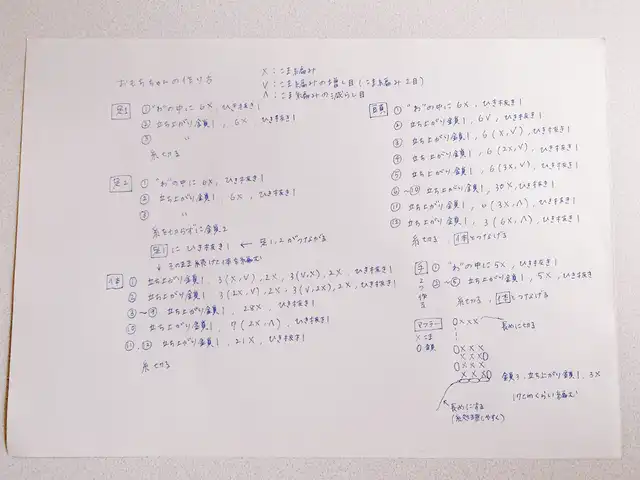 おもちちゃんの作り方
X：こま編み
V：こま編みの増し目（こま編み2目）
Λ：こま編みの減らし目
足1 ① "わ"の中に 6X, ひき抜き1
② 立ち上がり金具1, 6X ひき抜き1
③ 〃
糸切る
足2 ① "わ"の中に 6X, ひき抜き1
② 立ち上がり金具1, 6X, ひき抜き1
③ 〃
糸を切らずに金具2
足1にひき抜き1 ← 足1,2がつながる
そのまま続けて体を編む
体 ① 立ち上がり金具1, 3(X,V), 2X, 3(V,X), 2X, ひき抜き1
② 立ち上がり金具1, 3(2X,V), 2X, 3(V,2X), 2X, ひき抜き1
③〜⑨ 立ち上がり金具1, 28X, ひき抜き1
⑩ 立ち上がり金具1, 7(2X,Λ), ひき抜き1
⑪,⑫ 立ち上がり金具1, 21X, ひき抜き1
糸切る
頭 ① "わ"の中に 6X, ひき抜き1
② 立ち上がり金具1, 6V, ひき抜き1
③ 立ち上がり金具1, 6(X,V), ひき抜き1
④ 立ち上がり金具1, 6(2X,V), ひき抜き1
⑤ 立ち上がり金具1, 6(3X,V), ひき抜き1
⑥〜⑩ 立ち上がり金具1, 30X, ひき抜き1
⑪ 立ち上がり金具1, 6(3X,Λ), ひき抜き1
⑫ 立ち上がり金具1, 3(6X,Λ), ひき抜き1
糸切る, 体とつなげる
手 ① "わ"の中に 5X, ひき抜き1
2つ作る
立ち上がり金具1, 5X, ひき抜き
糸切る, 体とつなげる
マフラー
X こま
0 金具
0XXX
長めに切る
XXX0
0XXX
XXX0
0XXX
金具3, 立ち上がり金具1, 3X
くらい編む
長めにする
（糸処理しやすく）